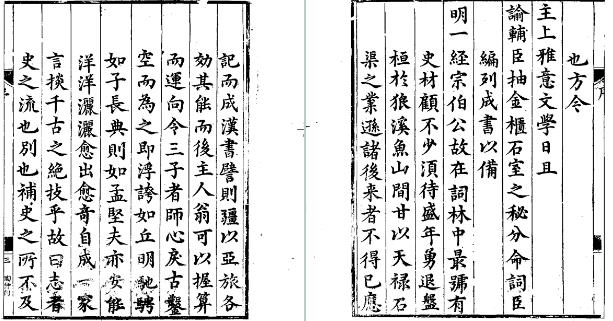 也方今
主上雅意文學日且
諭輔臣抽金櫃石室之秘分命詞臣
編列成書以備
明一経宗伯公故在詞林中最號有
史材顧不少湏待盛年勇退盤
桓於狼溪魚山間甘以天禄石
渠之業遜諸後来者不得已應
記而成漢書譬則疆以亞旅各
効其能而後主人翁可以握算
而運向令三子者師心戾古鑿
空而為之即浮誇如丘明馳騁
如子長典則如孟堅夫亦安能
洋洋灑灑愈出愈奇自成一家
言掞千古之絶技乎故曰志者
史之流也別也補史之所不及
三